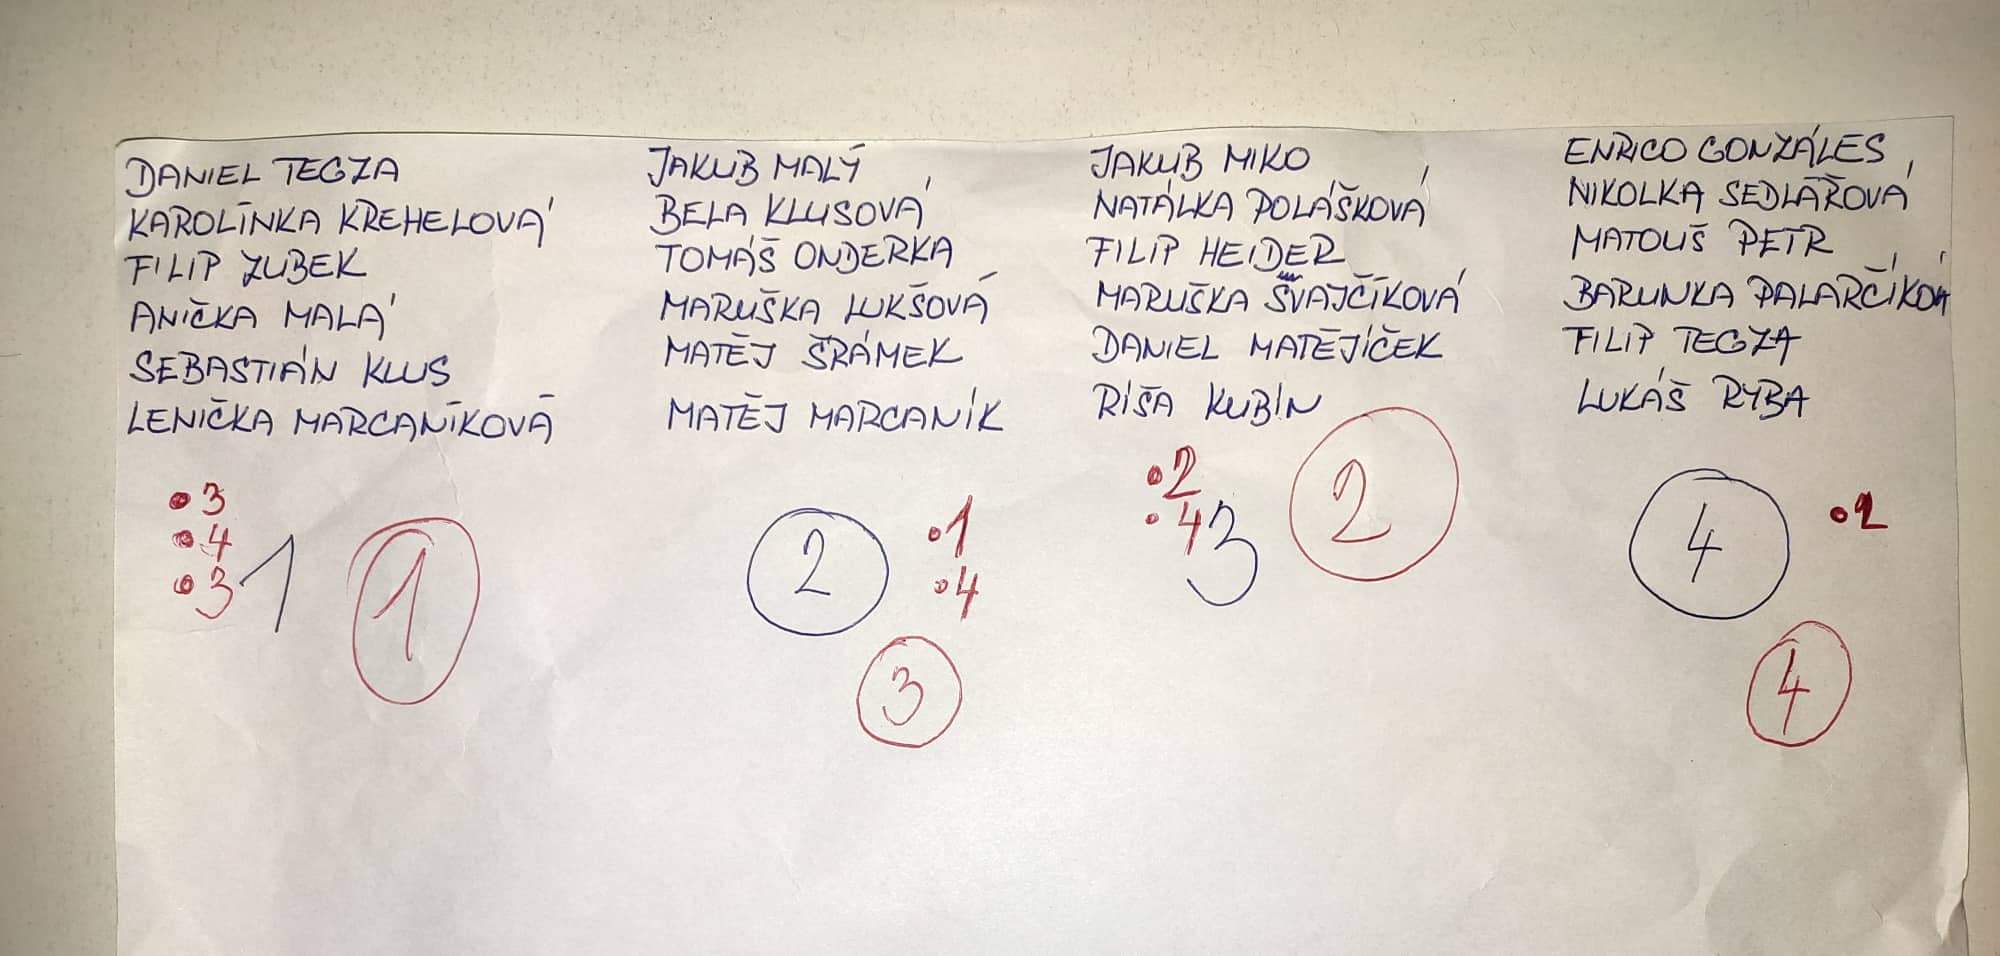 DANIEL TEGZA
KAROLÍNKA KREHELOVÁ
FILIP ZUBEK
ANIČKA MALÁ
SEBASTIÁN KLUS
LENIČKA MARCANÍKOVÁ
• 3
• 4
• 3
1
1
JAKUB MALÝ
BELA KLUSOVÁ
TOMÁŠ ONDERKA
MARUŠKA LUKŠOVÁ
MATĚJ ŠRÁMEK
MATĚJ MARCANÍK
2
• 1
• 4
3
JAKUB MIKO
NATÁLKA POLÁŠKOVÁ
FILIP HEIDER
MARUŠKA ŠVAJČÍKOVÁ
DANIEL MATĚJÍČEK
RÍŠA KUBÍN
• 2
• 4
3
2
ENRICO GONZÁLES
NIKOLKA SEDLÁŘOVÁ
MATOUŠ PETR
BARUNKA
FILIP TEGZA
LUKÁŠ RYBA
4
4